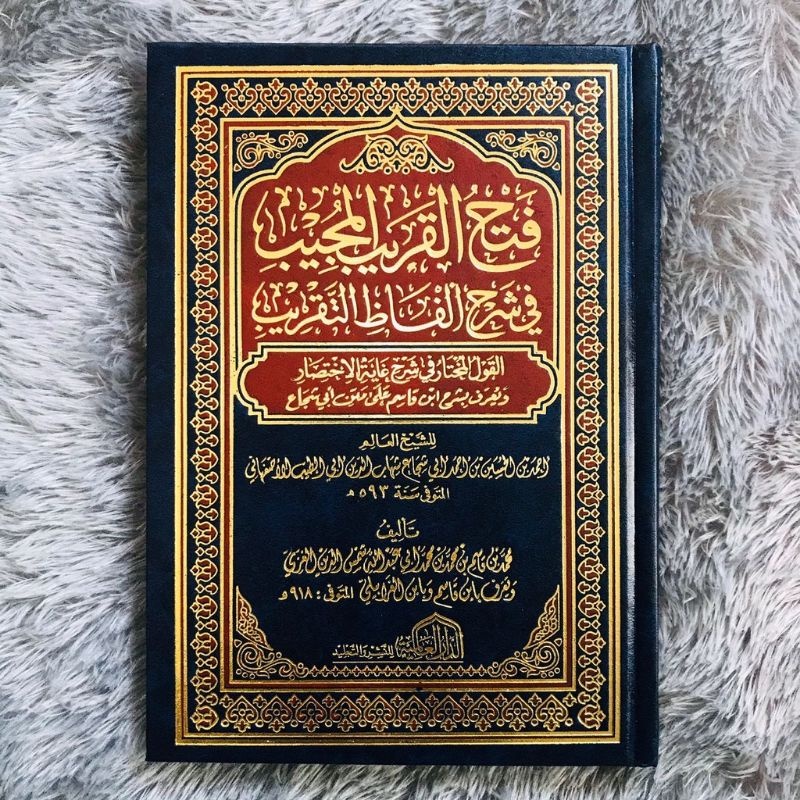 فَتْحُ القَرِيبِ المُجِيبِ
فِي شَرْحِ أَلْفَاظِ التَّقْرِيبِ
القول المختار في شرح غاية الاختصار
ويعرف بشرح ابن قاسم على متن أبي شجاع
للشيخ العالم
احمد بن الحسين بن احمد ابي شجاع شهاب الدين ابي الطيب الاصفهاني
المتوفى سنة ٥٩٣ هـ
تأليف
محمد بن قاسم بن محمد بن محمد ابي عبد الله شمس الدين الغزي
ويعرف بابن قاسم وبابن الغرابيلي المتوفى: ٩١٨ هـ
الدار العالمية للنشر والتجليد